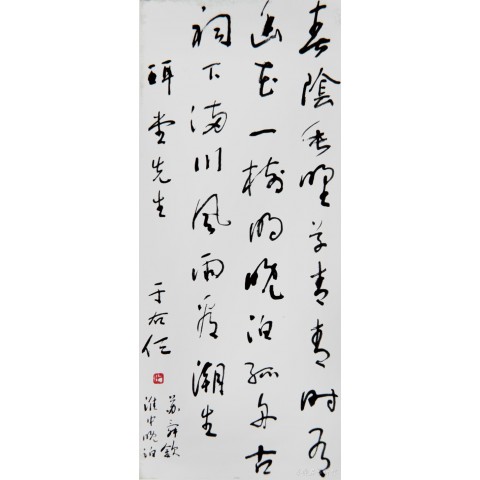 春陰垂野草青青時有
幽花一樹明晚泊孤舟古
祠下滿川風雨看潮生
研堂先生
于右任
蘇舜欽
淮中晚泊